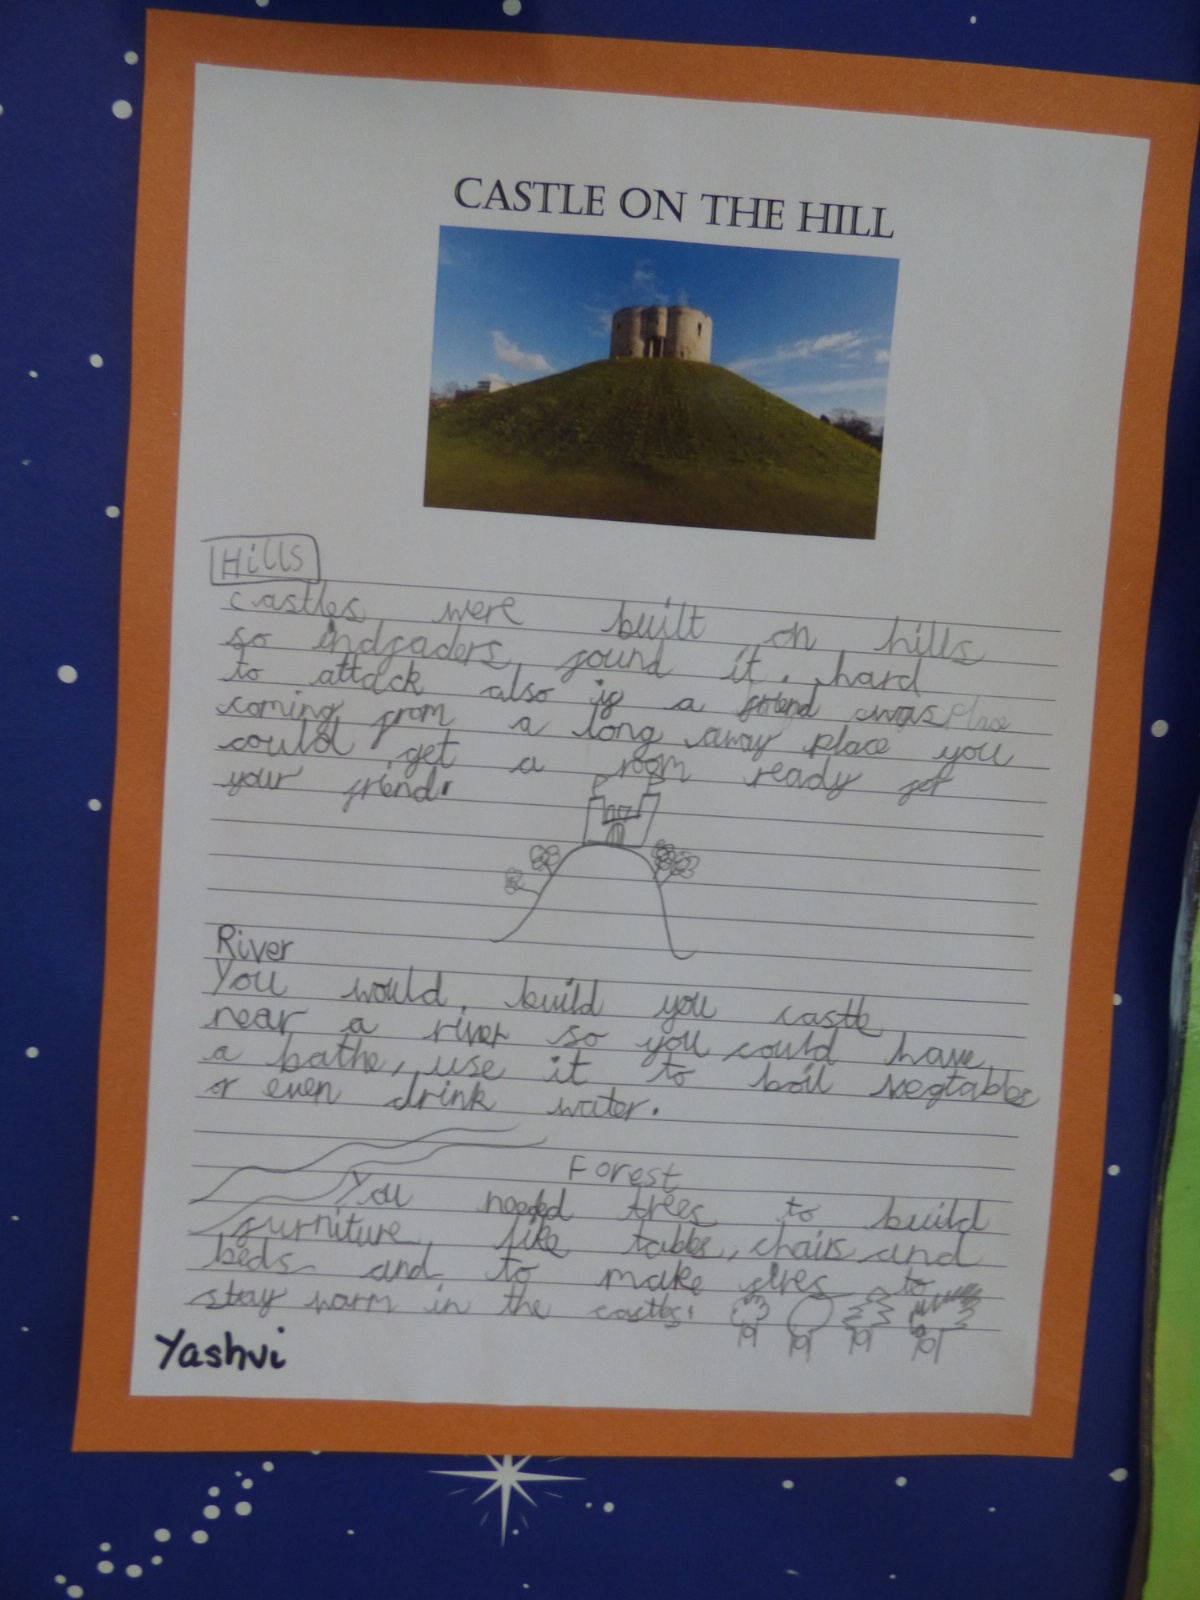 CASTLE ON THE HILL
Hills
castles were built on hills
so indfaders found it hard
to attack also if a friend was place
coming from a long away place you
could get a room ready for
your friend.
River
You would build you castle
near a river so you could have
a bathe, use it to boil vegtables
or even drink water.
Forest
You needed trees to build
furniture like tables, chairs and
beds and to make fires to
stay warm in the castles.
Yashvi